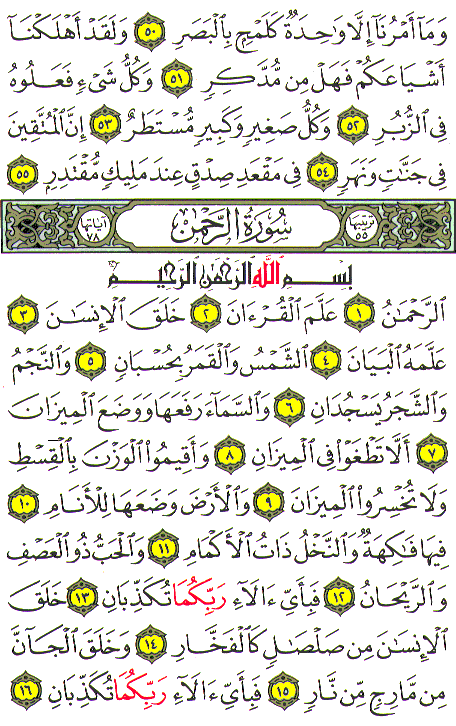 وَمَآ أَمْرُنَآ إِلَّا وَٰحِدَةٌ كَلَمْحٍۭ بِٱلْبَصَرِ ٥٠ وَلَقَدْ أَهْلَكْنَآ
أَشْيَاعَكُمْ فَهَلْ مِن مُّدَّكِرٍ ٥١ وَكُلُّ شَىْءٍ فَعَلُوهُ
فِى ٱلزُّبُرِ ٥٢ وَكُلُّ صَغِيرٍ وَكَبِيرٍ مُّسْتَطَرٌ ٥٣ إِنَّ ٱلْمُتَّقِينَ
فِى جَنَّٰتٍ وَنَهَرٍ ٥٤ فِى مَقْعَدِ صِدْقٍ عِندَ مَلِيكٍ مُّقْتَدِرٍۭ ٥٥
ترتيبها ٥٥ سُورَةُ الرَّحْمٰن آياتها ٧٨
بِسْمِ ٱللَّهِ ٱلرَّحْمَٰنِ ٱلرَّحِيمِ
ٱلرَّحْمَٰنُ ١ عَلَّمَ ٱلْقُرْءَانَ ٢ خَلَقَ ٱلْإِنسَٰنَ ٣
عَلَّمَهُ ٱلْبَيَانَ ٤ ٱلشَّمْسُ وَٱلْقَمَرُ بِحُسْبَانٍ ٥ وَٱلنَّجْمُ
وَٱلشَّجَرُ يَسْجُدَانِ ٦ وَٱلسَّمَآءَ رَفَعَهَا وَوَضَعَ ٱلْمِيزَانَ
٧ أَلَّا تَطْغَوْا۟ فِى ٱلْمِيزَانِ ٨ وَأَقِيمُوا۟ ٱلْوَزْنَ بِٱلْقِسْطِ
وَلَا تُخْسِرُوا۟ ٱلْمِيزَانَ ٩ وَٱلْأَرْضَ وَضَعَهَا لِلْأَنَامِ ١٠
فِيهَا فَٰكِهَةٌ وَٱلنَّخْلُ ذَاتُ ٱلْأَكْمَامِ ١١ وَٱلْحَبُّ ذُو ٱلْعَصْفِ
وَٱلرَّيْحَانُ ١٢ فَبِأَىِّ ءَالَآءِ رَبِّكُمَا تُكَذِّبَانِ ١٣ خَلَقَ
ٱلْإِنسَٰنَ مِن صَلْصَٰلٍ كَٱلْفَخَّارِ ١٤ وَخَلَقَ ٱلْجَآنَّ
مِن مَّارِجٍ مِّن نَّارٍ ١٥ فَبِأَىِّ ءَالَآءِ رَبِّكُمَا تُكَذِّبَانِ ١٦